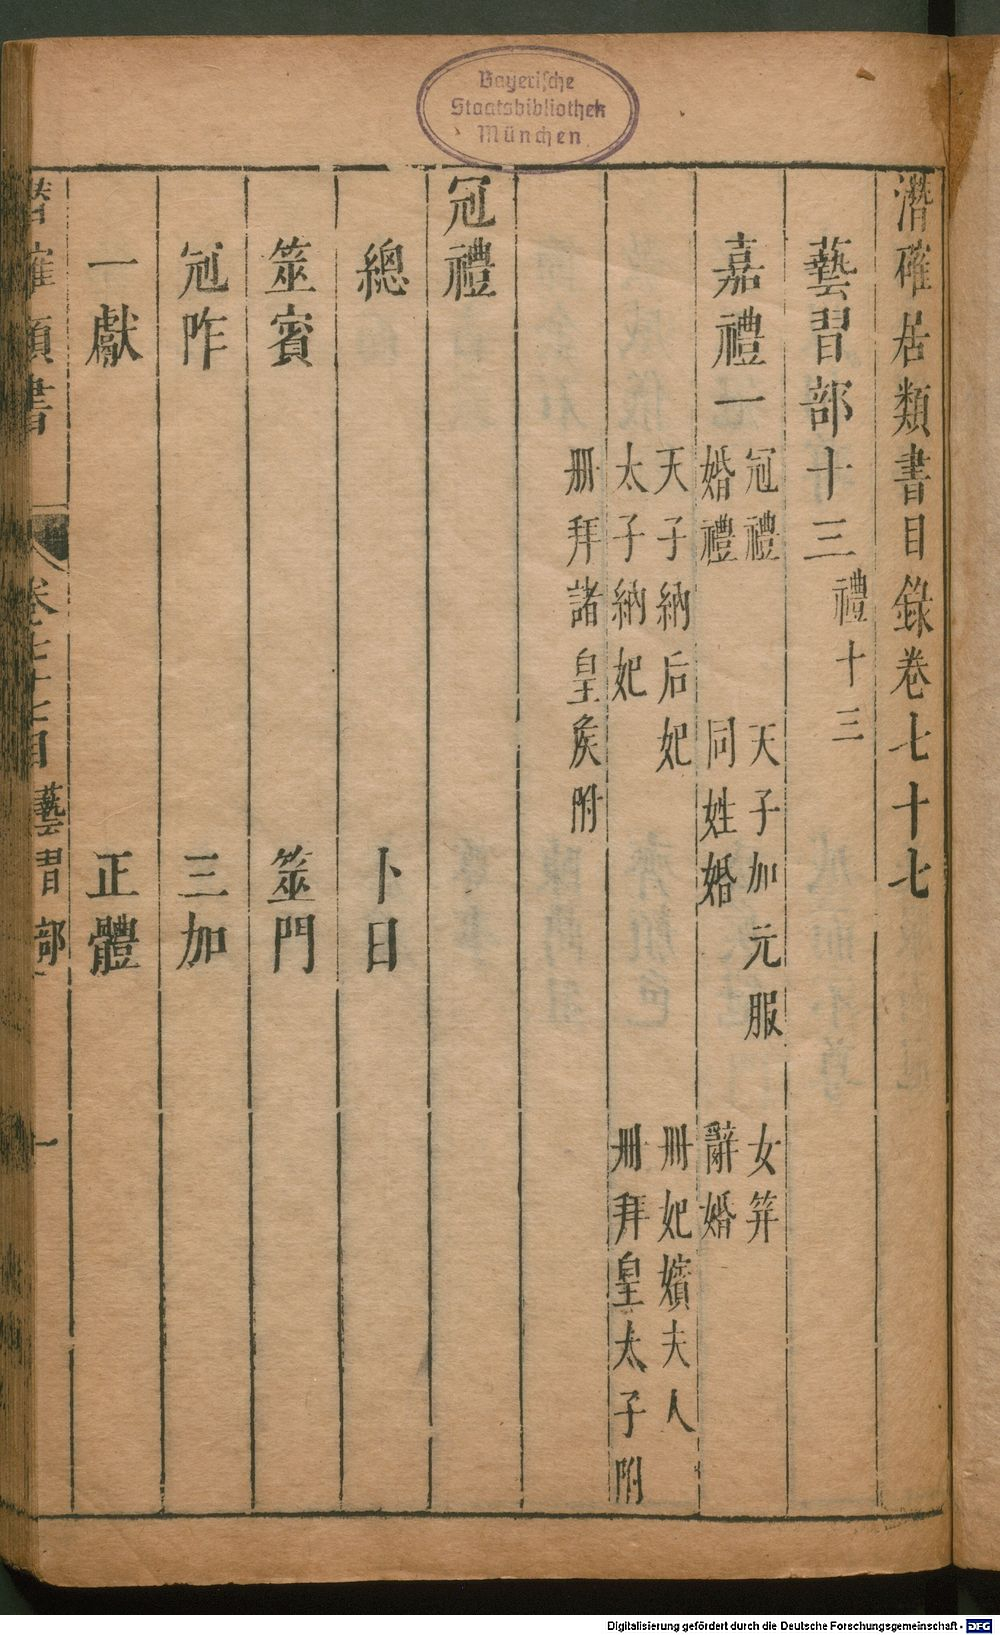 Bayerische
Staatsbibliothek
München
潛確居類書目錄卷七十七
藝習部十三 禮十三
嘉禮一
冠禮 天子加元服 女筓
婚禮 同姓婚 辭婚
天子納后妃 冊妃嬪夫人
太子納妃 冊拜皇太子附
冊拜諸皇矦附
冠禮
總 卜日
筮賓 筮門
冠阼 三加
一獻 正體
潛確類書 卷七十七目 藝習部 一
Digitalisierung gefördert durch die Deutsche Forschungsgemeinschaft - DFG